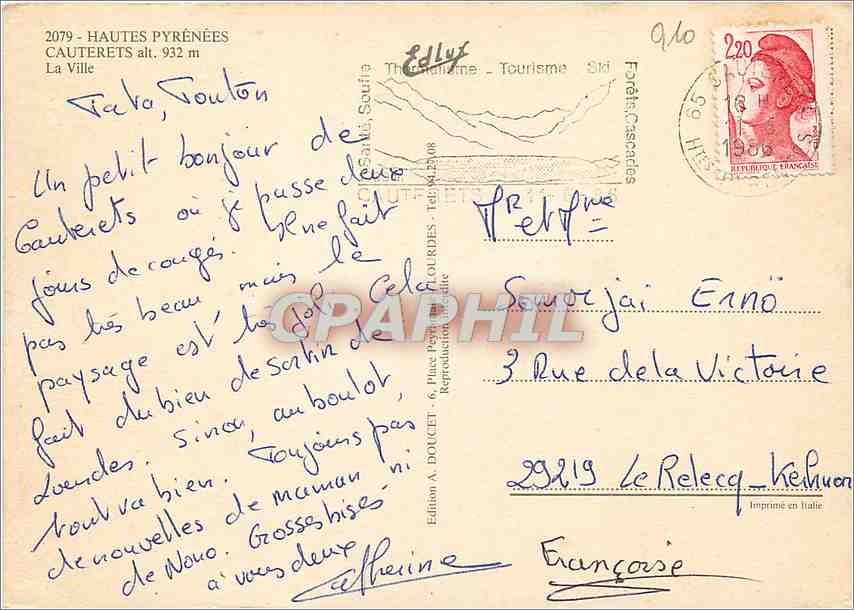 2079 - HAUTES PYRÉNÉES
CAUTERETS alt. 932 m
La Ville
Tata, Tonton
Un petit bonjour de
Cauterets où je passe deux
jours de congés. Il ne fait
pas très beau, mais le
paysage est très joli. Cela
fait du bien de sortir de
Lourdes. Sinon, au boulot,
tout va bien. Toujours pas
de nouvelles de maman ni
de Nono. Grosses bises
à vous deux
Catherine
Françoise
Edition A. DOUCET - 6, Place Peyramale LOURDES - Tel: 94.27.08
Reproduction interdite
Edlyf
Thermalisme - Tourisme Ski
Santé, Soufre
Forêts, Cascades
CAUTERETS
910
2,20
REPUBLIQUE FRANÇAISE
65
16 H
1986
Htes
Mr et Mme
Somorjai Ernö
3 Rue de la Victoire
29219 Le Relecq-Kerhuon
Imprimé en Italie
CPAPHIL